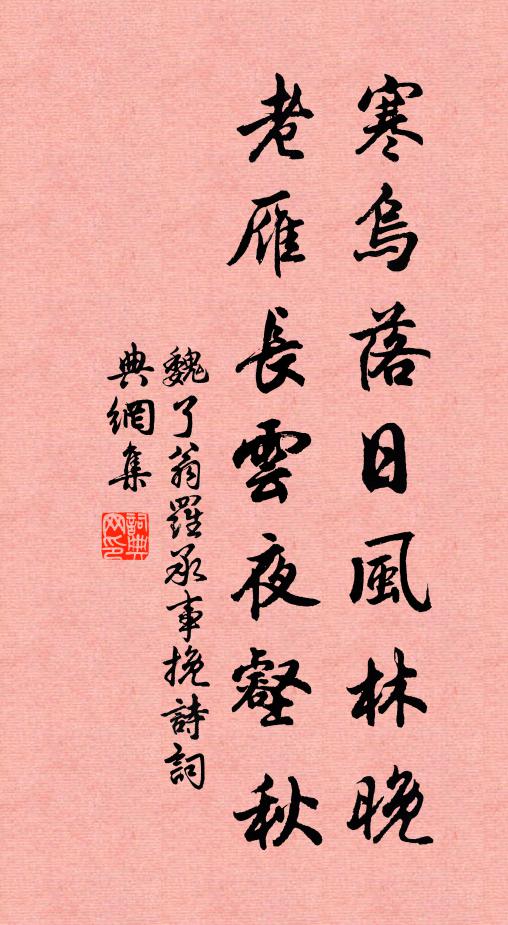 寒烏落日風林晚
老雁長雲夜壑秋
魏了翁羅承事挽詩詞
典網集
詞典網印